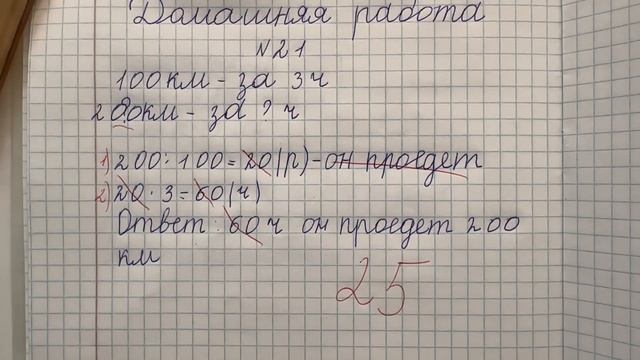 Домашняя работа
№21
100км - за 3ч
200км - за ? ч
1) 200 : 100 = 20 (р) - он проедет
2) 20 · 3 = 60 (ч)
Ответ : 60 ч он проедет 200
км
25